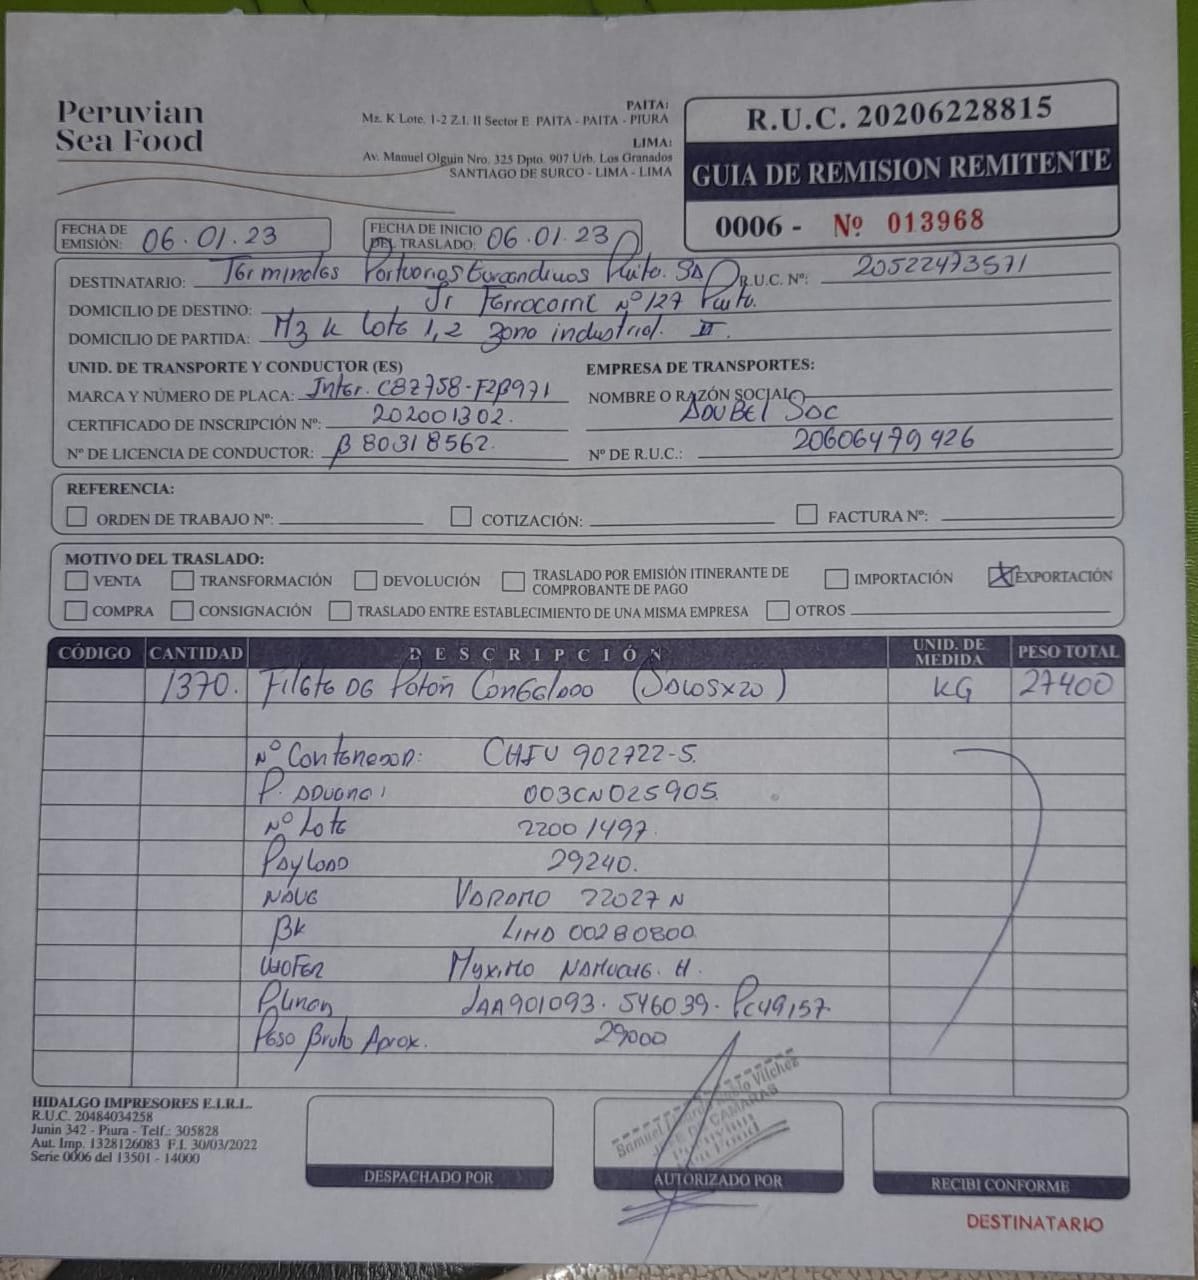 Peruvian
Sea Food
PAITA:
Mz. K Lote. 1-2 Z.I. II Sector E PAITA - PAITA - PIURA
LIMA:
Av. Manuel Olguin Nro. 325 Dpto. 907 Urb. Los Granados
SANTIAGO DE SURCO - LIMA - LIMA
R.U.C. 20206228815
GUIA DE REMISION REMITENTE
0006 - Nº 013968
FECHA DE EMISIÓN: 06.01.23
FECHA DE INICIO DEL TRASLADO: 06.01.23
DESTINATARIO: Terminales Portuarios Euroandinos Paita. SA R.U.C. Nº: 20522473571
DOMICILIO DE DESTINO: Jr Ferrocarril Nº 127 Paita.
DOMICILIO DE PARTIDA: Mz K lote 1,2 zona industrial. II.
UNID. DE TRANSPORTE Y CONDUCTOR (ES)
MARCA Y NÚMERO DE PLACA: Inter. C8Z758-F2B971
CERTIFICADO DE INSCRIPCIÓN Nº: 202001302.
Nº DE LICENCIA DE CONDUCTOR: B80318562.
EMPRESA DE TRANSPORTES:
NOMBRE O RAZÓN SOCIAL
ADUBEL SAC
Nº DE R.U.C.: 20606479426
REFERENCIA:
ORDEN DE TRABAJO Nº: COTIZACIÓN: FACTURA Nº:
MOTIVO DEL TRASLADO:
VENTA TRANSFORMACIÓN DEVOLUCIÓN TRASLADO POR EMISIÓN ITINERANTE DE COMPROBANTE DE PAGO IMPORTACIÓN EXPORTACIÓN
COMPRA CONSIGNACIÓN TRASLADO ENTRE ESTABLECIMIENTO DE UNA MISMA EMPRESA OTROS
CÓDIGO CANTIDAD DESCRIPCIÓN UNID. DE MEDIDA PESO TOTAL
1370. Filete DE Poton Congelado (SACOSX20) KG 27400
Nº Contenedor: CHIU 902722-5.
P. ADUANA: 003CN025905.
Nº Lote 22001497.
Payload 29240.
NAVE VARAMO 22027N
BK LIMA 00280800.
CHOFER Maximo NAMUCHE. H.
JAA901093. 546039. PC49157
Peso Bruto Aprox. 29000
HIDALGO IMPRESORES E.I.R.L.
R.U.C. 20484034258
Junin 342 - Piura - Telf.: 305828
Aut. Imp. 1328126083 F.I. 30/03/2022
Serie 0006 del 13501 - 14000
Samuel Vilchez
JEFE DE CAMARAS
Peruvian
Sea Food
DESPACHADO POR
AUTORIZADO POR
RECIBI CONFORME
DESTINATARIO